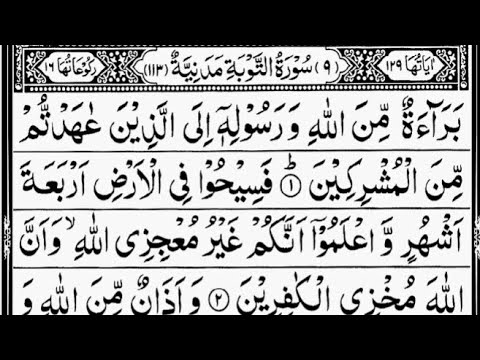 اٰيَاتُهَا ١٢٩ (٩) سُوْرَةُ التَّوْبَةِ مَدَنِيَّةٌ (١١٣) رُكُوْعَاتُهَا ١٦
بَرَآءَةٌ مِّنَ اللّٰهِ وَ رَسُوْلِهٖۤ اِلَى الَّذِيْنَ عٰهَدْتُّمْ
مِّنَ الْمُشْرِكِيْنَ ؕ ١ فَسِيْحُوْا فِى الْاَرْضِ اَرْبَعَةَ
اَشْهُرٍ وَّ اعْلَمُوْۤا اَنَّكُمْ غَيْرُ مُعْجِزِى اللّٰهِ ۙ وَ اَنَّ
اللّٰهَ مُخْزِى الْكٰفِرِيْنَ ٢ وَ اَذَانٌ مِّنَ اللّٰهِ وَ